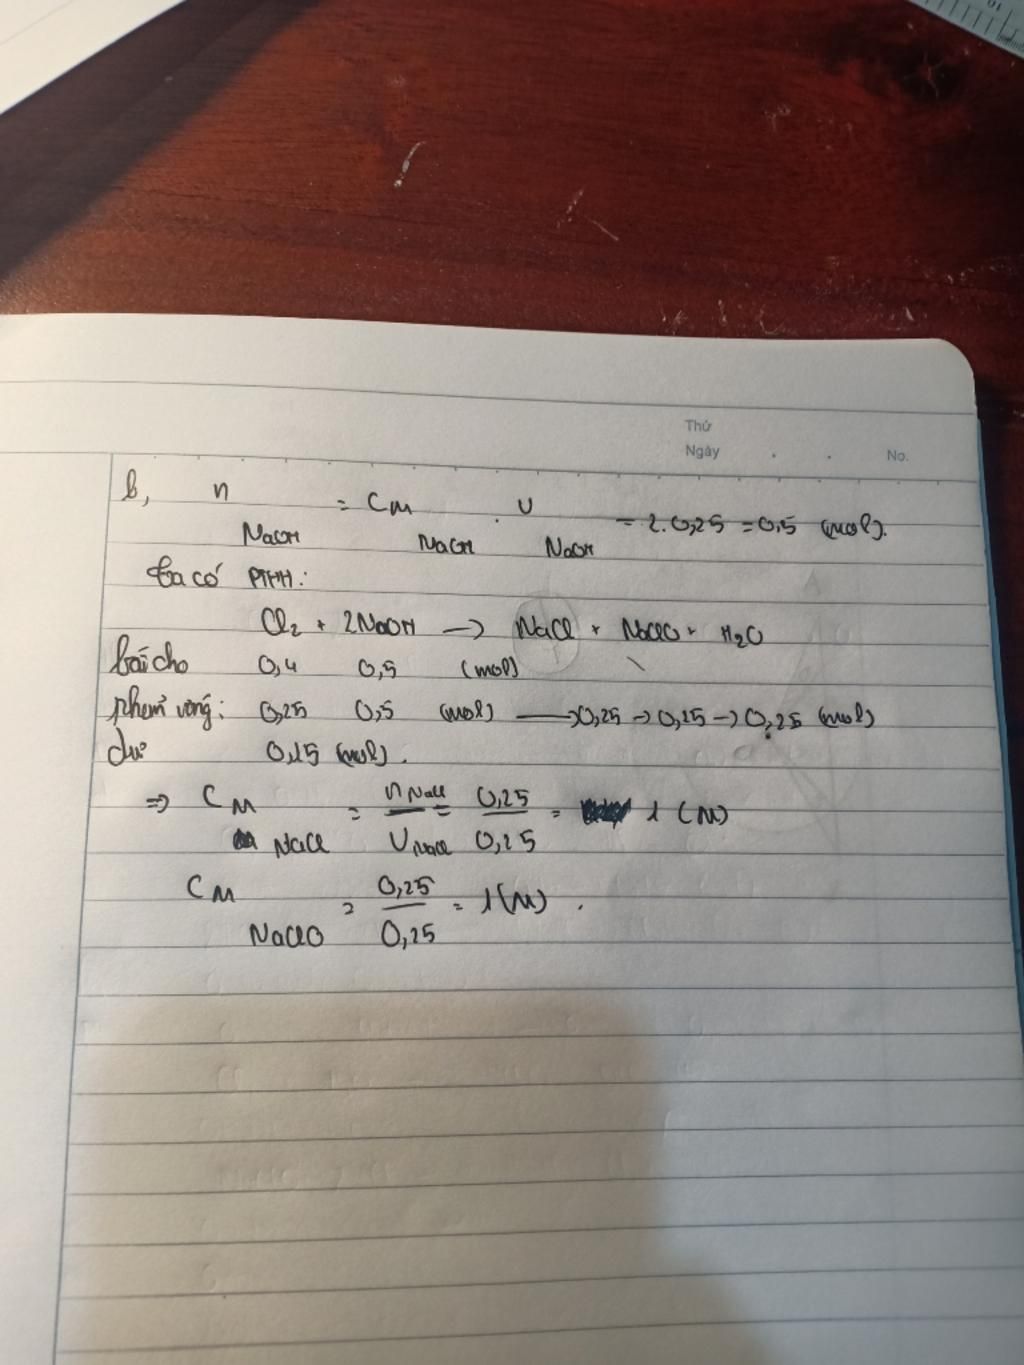 Thứ
Ngày . . No.
b, n NaOH = CM NaOH . V NaOH = 2.0,25 = 0,5 (mol).
ta có PTHH:
Cl2 + 2NaOH → NaCl + NaClO + H2O
bài cho 0,4 0,5 (mol)
phản ứng: 0,25 0,5 (mol) → 0,25 → 0,25 → 0,25 (mol)
dư 0,15 (mol).
⇒ CM NaCl = n NaCl / V NaCl = 0,25 / 0,25 = 1 (M)
CM NaClO = 0,25 / 0,25 = 1 (M) .